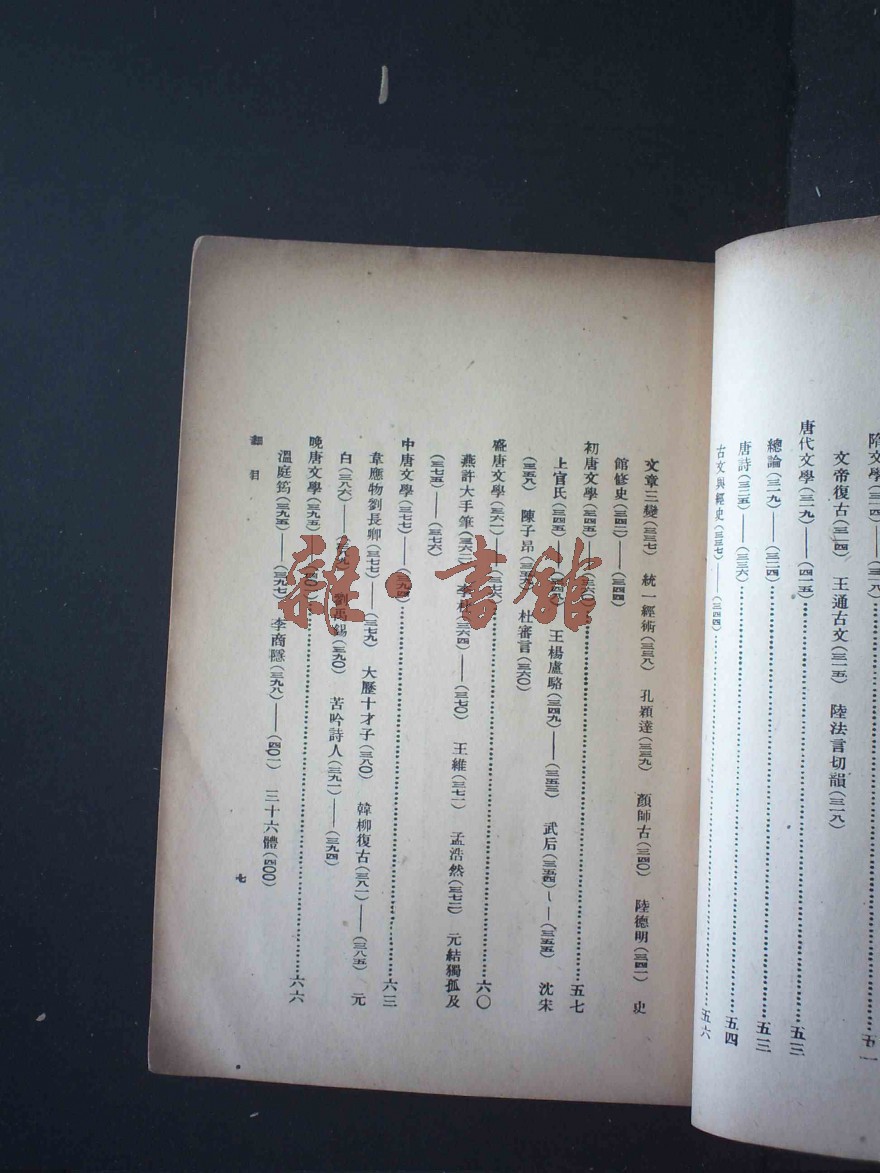 隋文學(三一四)——(三一八)……五一
文帝復古(三一四) 王通古文(三一五) 陸法言切韻(三一八)
唐代文學(三一九)——(四一五)……五三
總論(三一九)——(三二四)……五三
唐詩(三二五)——(三三六)……五四
古文與經史(三三七)——(三四四)……五六
文章三變(三三七) 統一經術(三三八) 孔穎達(三三九) 顏師古(三四〇) 陸德明(三四一) 史
館修史(三四二)——(三四四)
初唐文學(三四五)——(三六〇)……五七
上官氏(三四五)——(三四八) 王楊盧略(三四九)——(三五三) 武后(三五四)——(三五五) 沈宋
(三五八) 陳子昂(三五九) 杜審言(三六〇)
盛唐文學(三六一)——(三七六)……六〇
燕許大手筆(三六二) 李杜(三六四)——(三七〇) 王維(三七一) 孟浩然(三七二) 元結獨孤及
(三七五)——(三七六)
中唐文學(三七七)——(三九四)……六三
韋應物劉長卿(三七七)——(三七九) 大歷十才子(三八〇) 韓柳復古(三八一)——(三八五) 元
白(三八六)——(三八九) 劉禹錫(三九〇) 苦吟詩人(三九一)——(三九四)
晚唐文學(三九五)——……六六
溫庭筠(三九五)——(三九七) 李商隱(三九八)——(四〇一) 三十六體(四〇〇)
細目
七
雜·書館